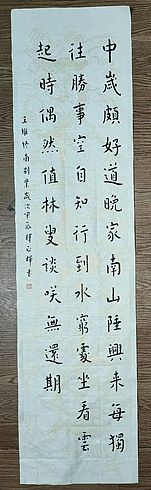 中歲頗好道晚家南山陲興来每獨
往勝事空自知行到水窮處坐看雲
起時偶然值林叟談咲無還期
王維終南別業歲次甲辰